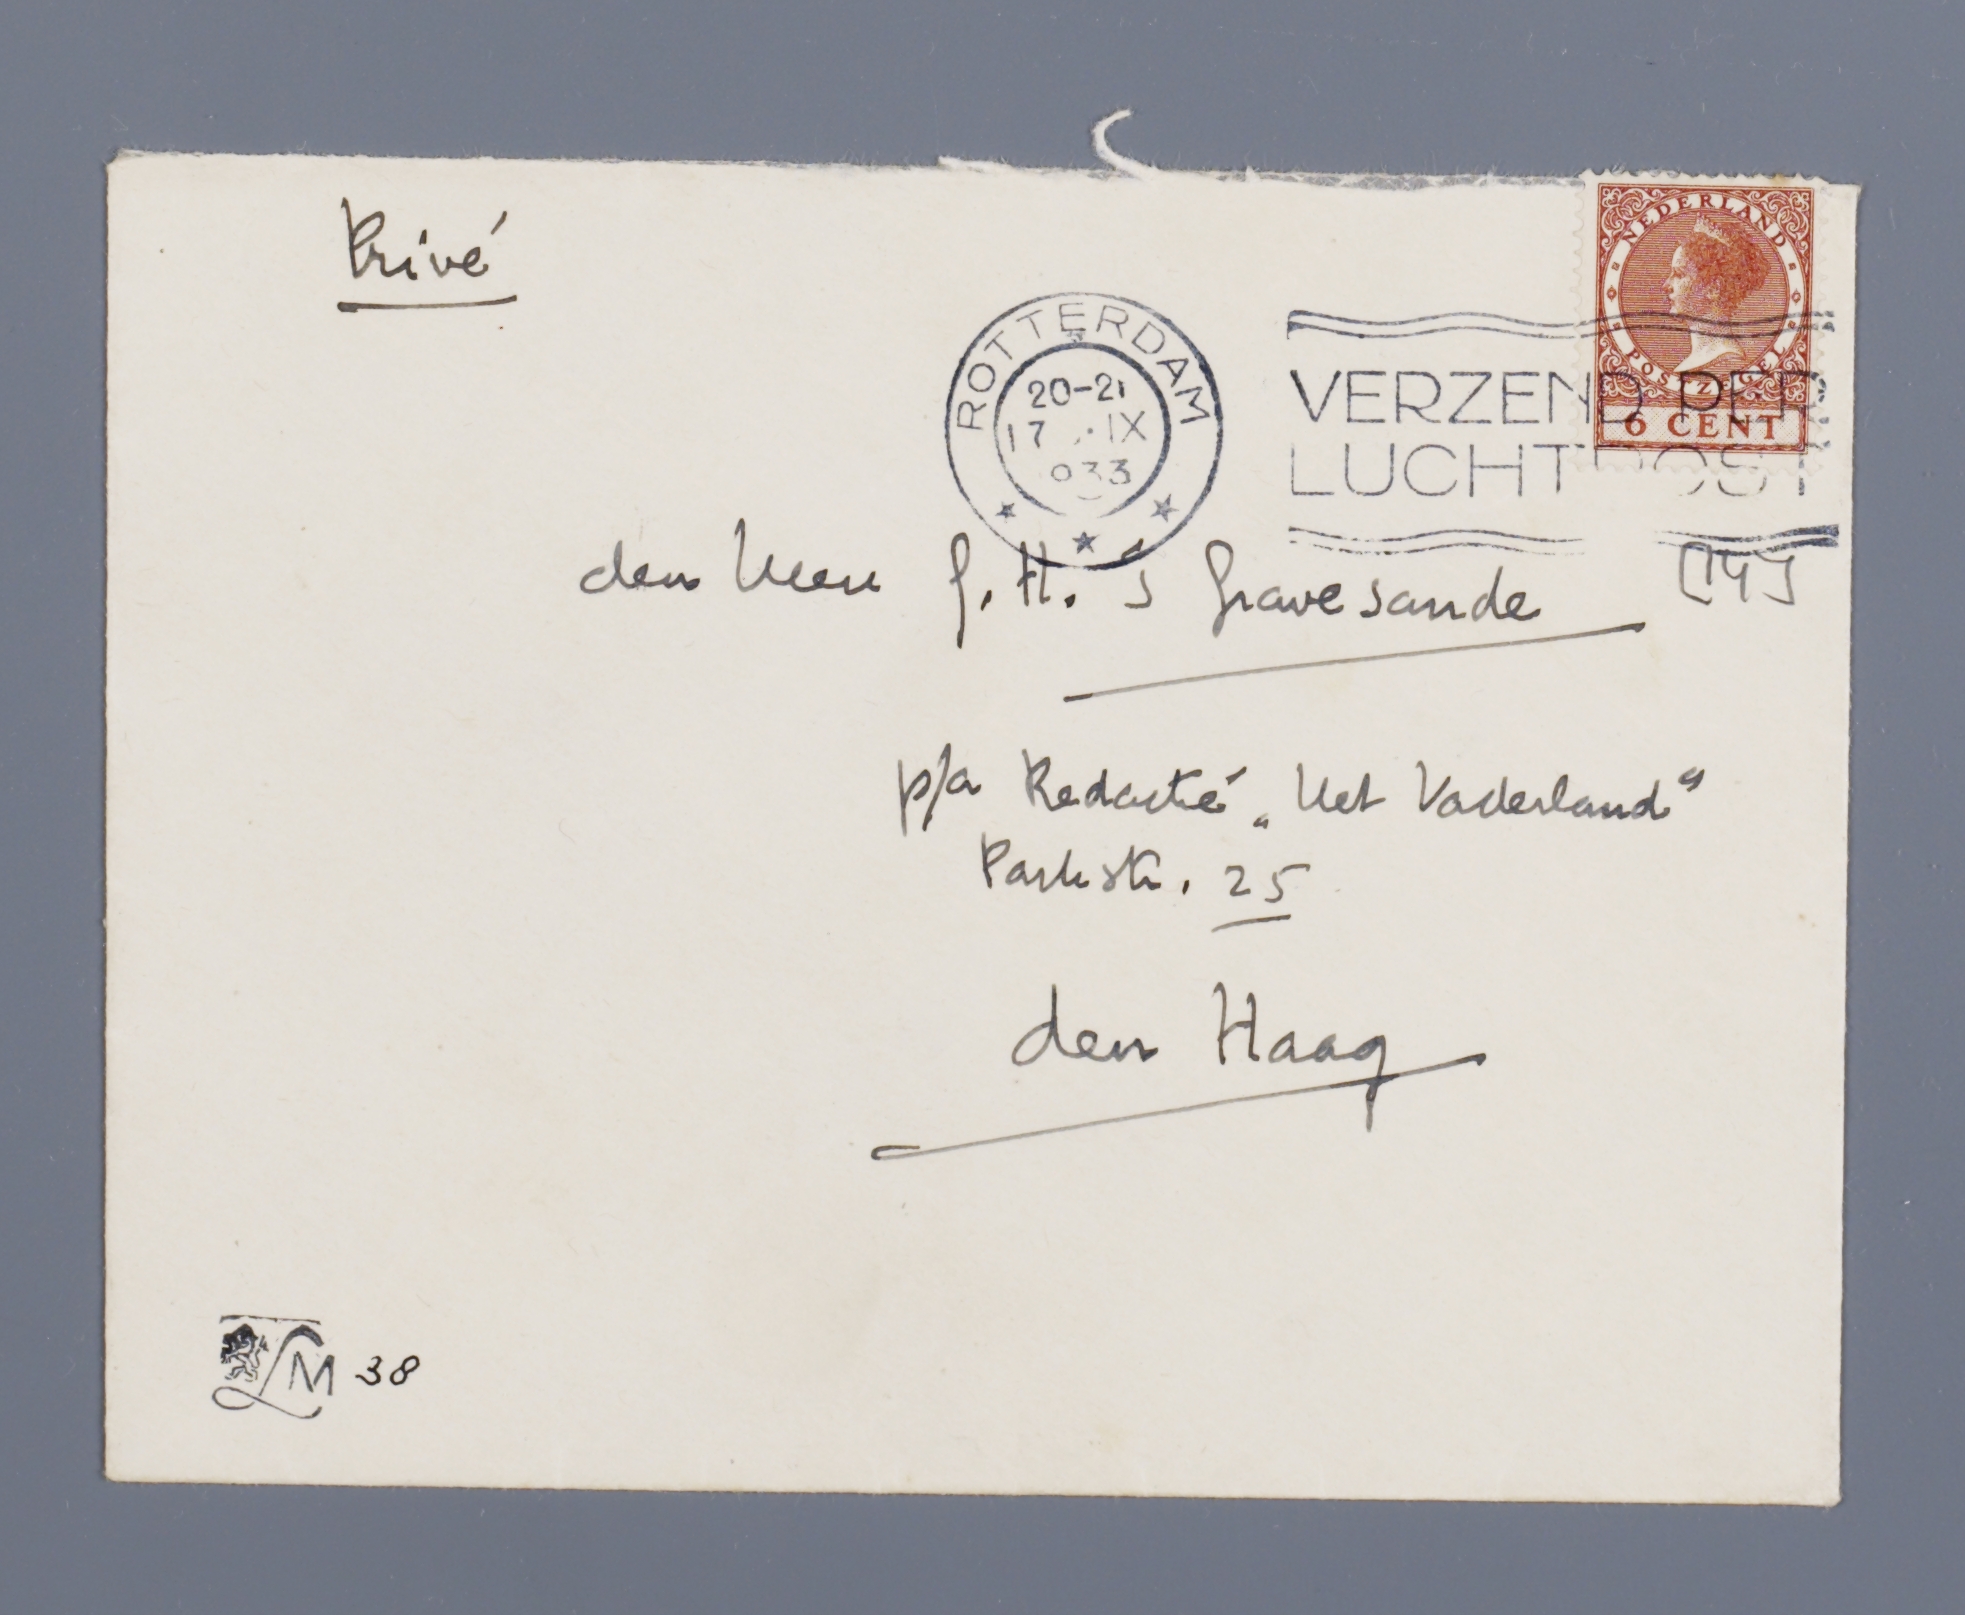 Privé
NEDERLAND
POSTZEGEL
6 CENT
ROTTERDAM
20-21
17 IX
1933
VERZEND PER
LUCHTPOST
den Heer G. H. 's Gravesande
[14]
p/a Redactie „Het Vaderland”
Parkstr. 25
den Haag
LM 38